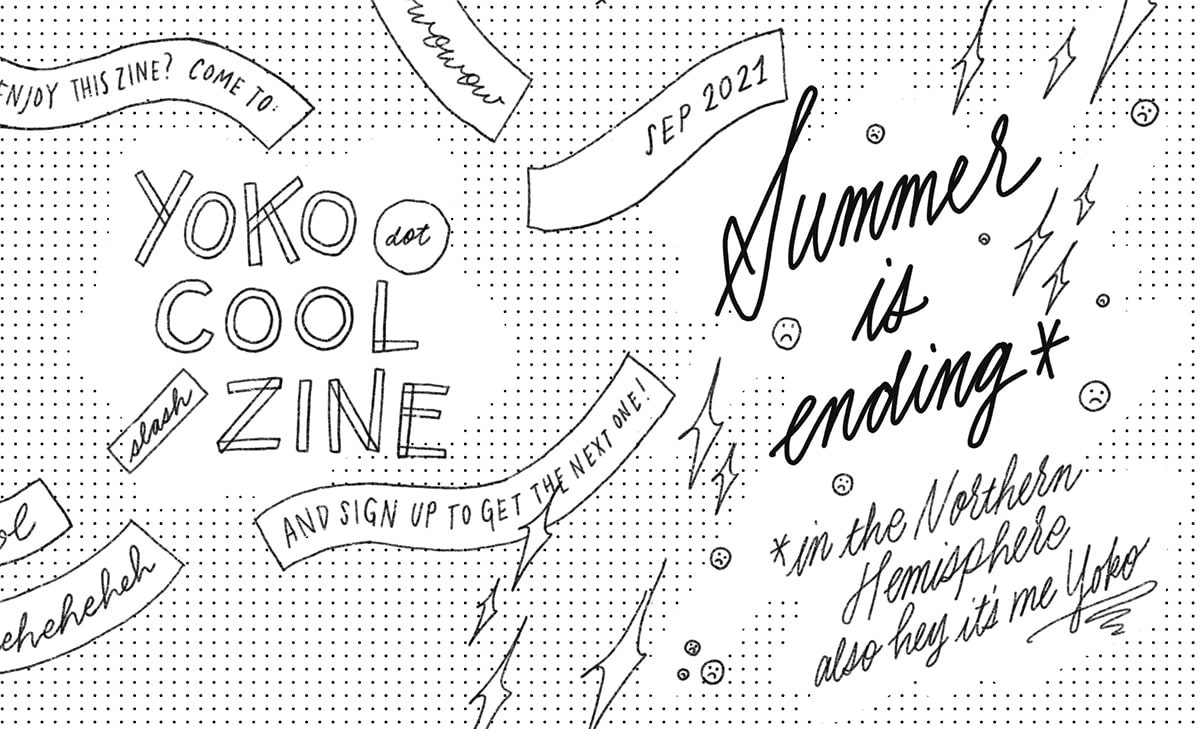 ENJOY THIS ZINE? COME TO:
YOKO dot
COOL
slash ZINE
AND SIGN UP TO GET THE NEXT ONE!
wowow
heheheheh
SEP 2021
Summer
is
ending*
*in the Northern
Hemisphere
also hey it's me Yoko